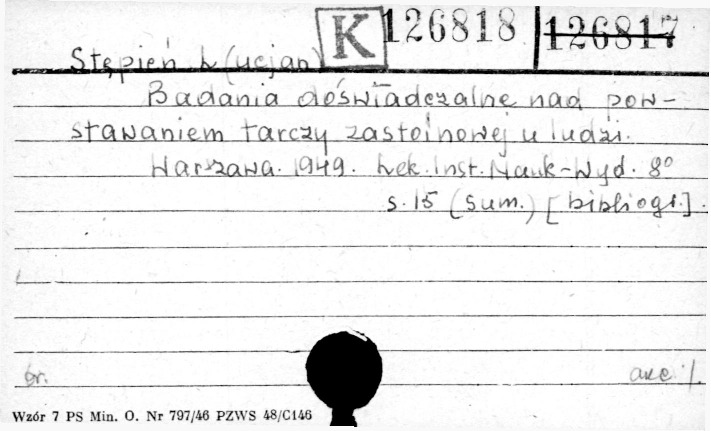 K 126818 126817
Stępień L(ucjan)
Badania doświadczalne nad pow-
stawaniem tarczy zastoinowej u ludzi.
Warszawa. 1949. Lek. Inst. Nauk-Wyd. 8°
s. 15 (sum.) [bibliogr.].
br. akc /.
Wzór 7 PS Min. O. Nr 797/46 PZWS 48/C146